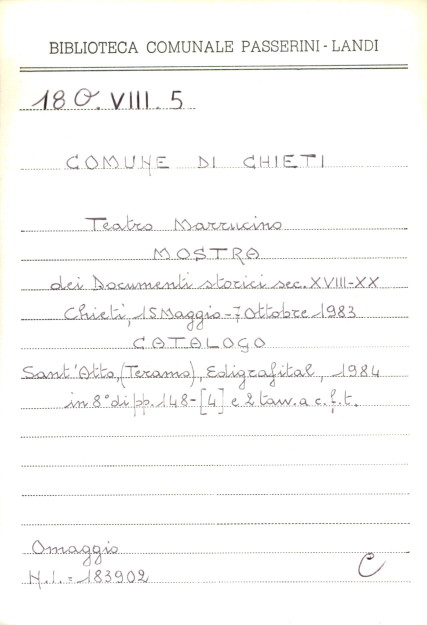 BIBLIOTECA COMUNALE PASSERINI - LANDI
18 O. VIII. 5
COMUNE DI CHIETI
Teatro Marrucino
MOSTRA
dei Documenti storici sec. XVIII-XX
Chieti, 15 Maggio - 7 Ottobre 1983
CATALOGO
Sant'Atto, (Teramo), Edigrafital, 1984
in 8° di pp. 148-[4] e 2 tavv. a c. f. t.
Omaggio
N.I. = 183902
C